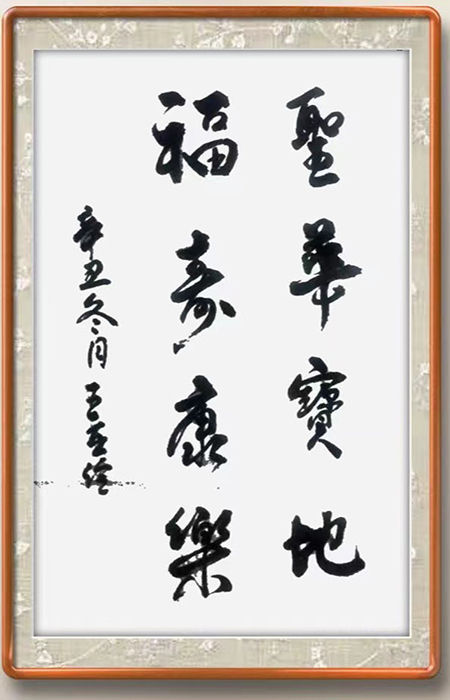 聖華寶地
福壽康樂
辛丑冬月 王